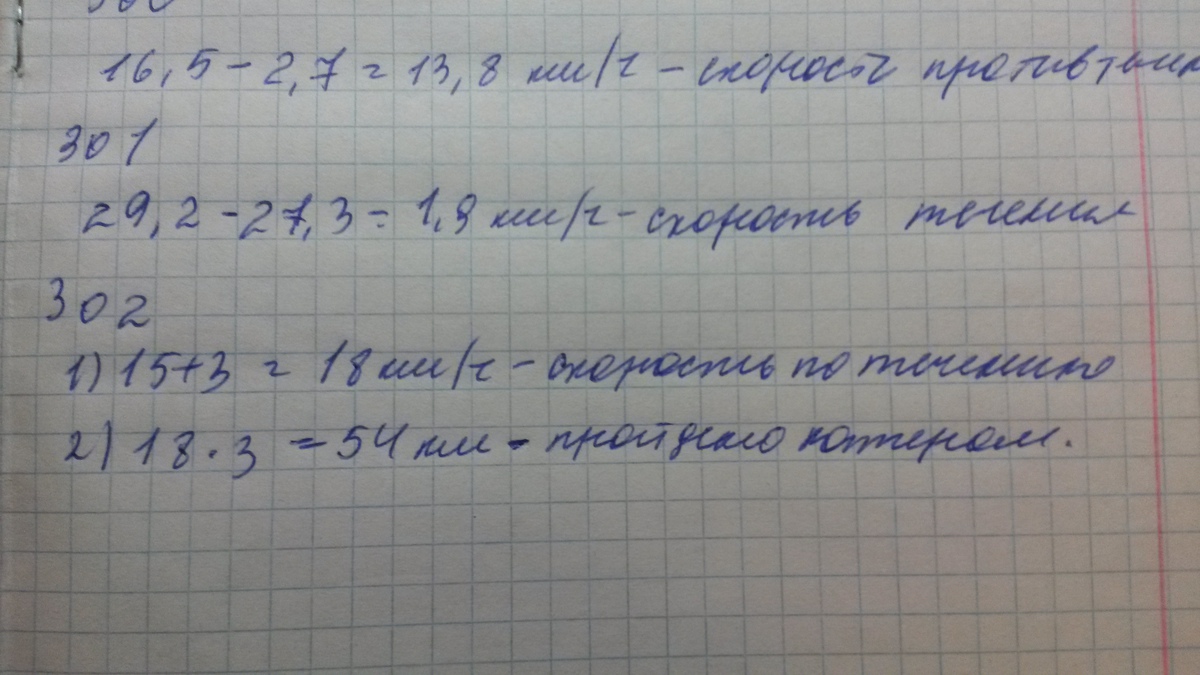 300
16,5 - 2,7 = 13,8 км/ч - скорость против течен
301
29,2 - 27,3 = 1,9 км/ч - скорость течения
302
1) 15+3 = 18 км/ч - скорость по течению
2) 18 · 3 = 54 км - пройдено катером.